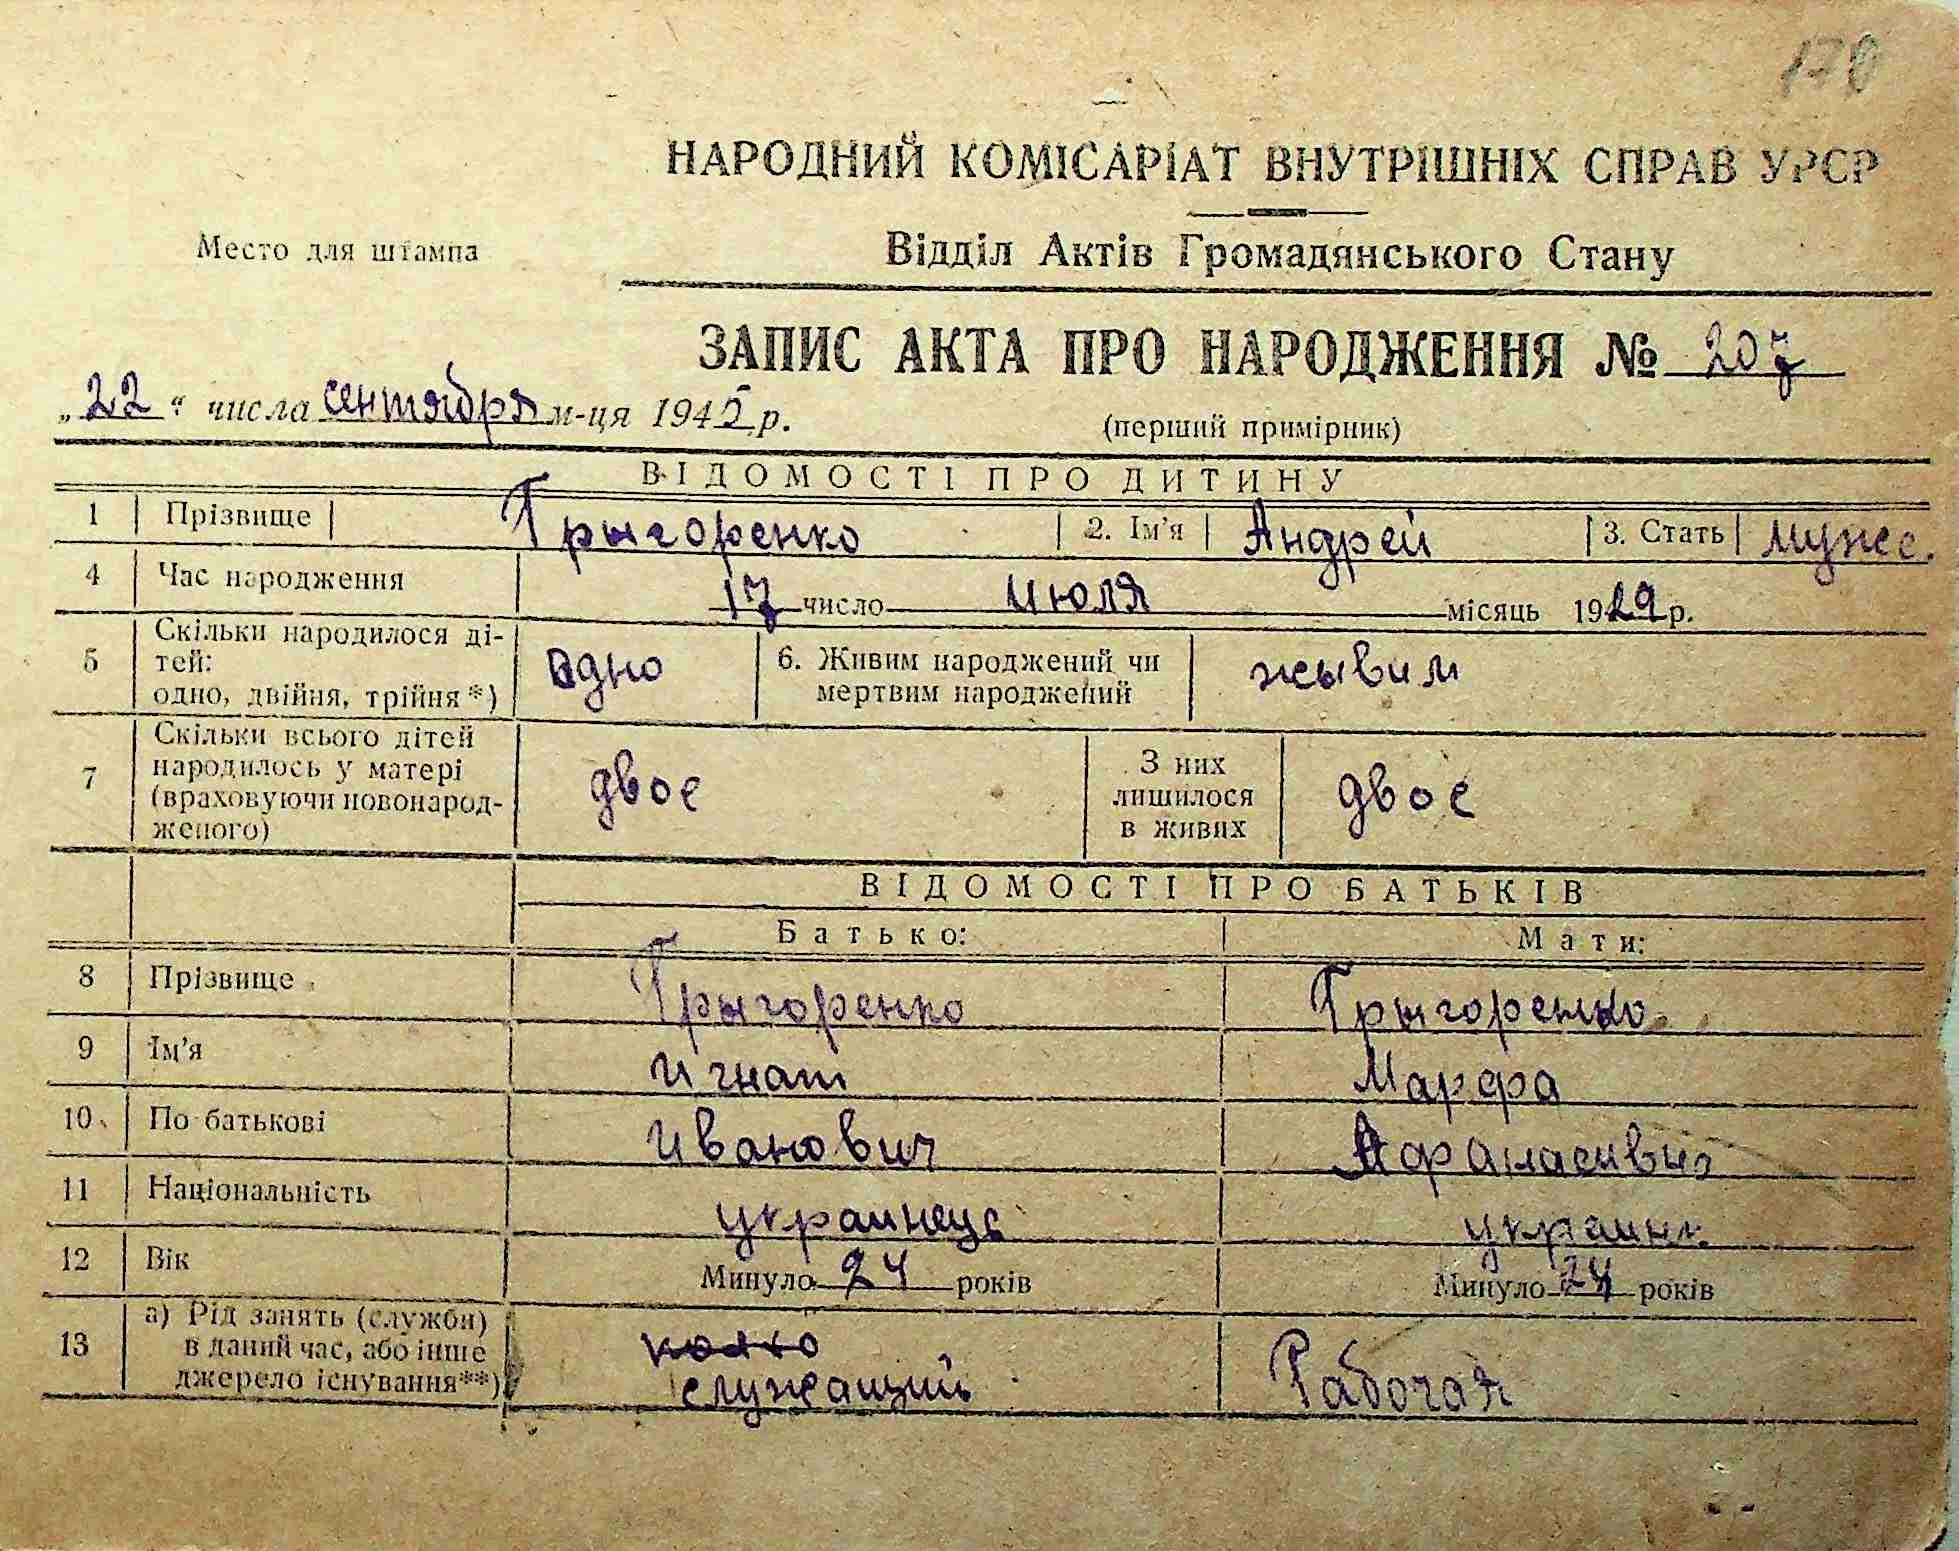 170
НАРОДНИЙ КОМІСАРІАТ ВНУТРІШНІХ СПРАВ УРСР
Место для штампа
Відділ Актів Громадянського Стану
ЗАПИС АКТА ПРО НАРОДЖЕННЯ № 207
„22“ числа сентября м-ця 1945 р.
(перший примірник)
ВІДОМОСТІ ПРО ДИТИНУ
1 Прізвище Грыгоренко 2. Ім'я Андрей 3. Стать мужс.
4 Час народження 17 число июля місяць 1929 р.
5 Скільки народилося ді-
тей:
одно, двійня, трійня*)
одно
6. Живим народжений чи
мертвим народжений
жывим
7 Скільки всього дітей
народилось у матері
(враховуючи новонарод-
женого)
двое
З них
лишилося
в живих
двое
ВІДОМОСТІ ПРО БАТЬКІВ
Батько: Мати:
8 Прізвище Грыгоренко Грыгоренко
9 Ім'я Игнат Марфа
10 По батькові Иванович
11 Національність украинець украинк
12 Вік Минуло 24 років Минуло 24 років
13 а) Рід занять (служби)
в даний час, або інше
джерело існування**)
служащий Рабочая